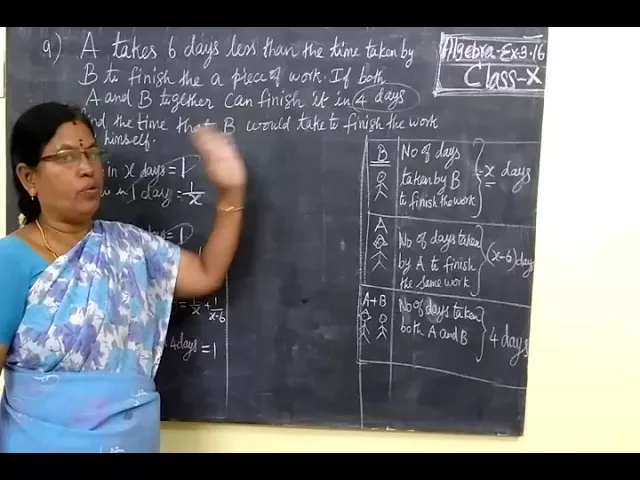 9) A takes 6 days less than the time taken by
B to finish the a piece of work. If both
A and B together can finish it in 4 days
find the time that B would take to finish the work
himself.
Algebra-Ex-3.16
Class-X
in x days = 1
in 1 day = 1/x
days = 1
= 1/x + 1/x-6
4 days = 1
B
No of days
taken by B
to finish the work
x days
A
No of days taken
by A to finish
the same work
(x-6) day
A+B
No of days taken
both A and B
4 days